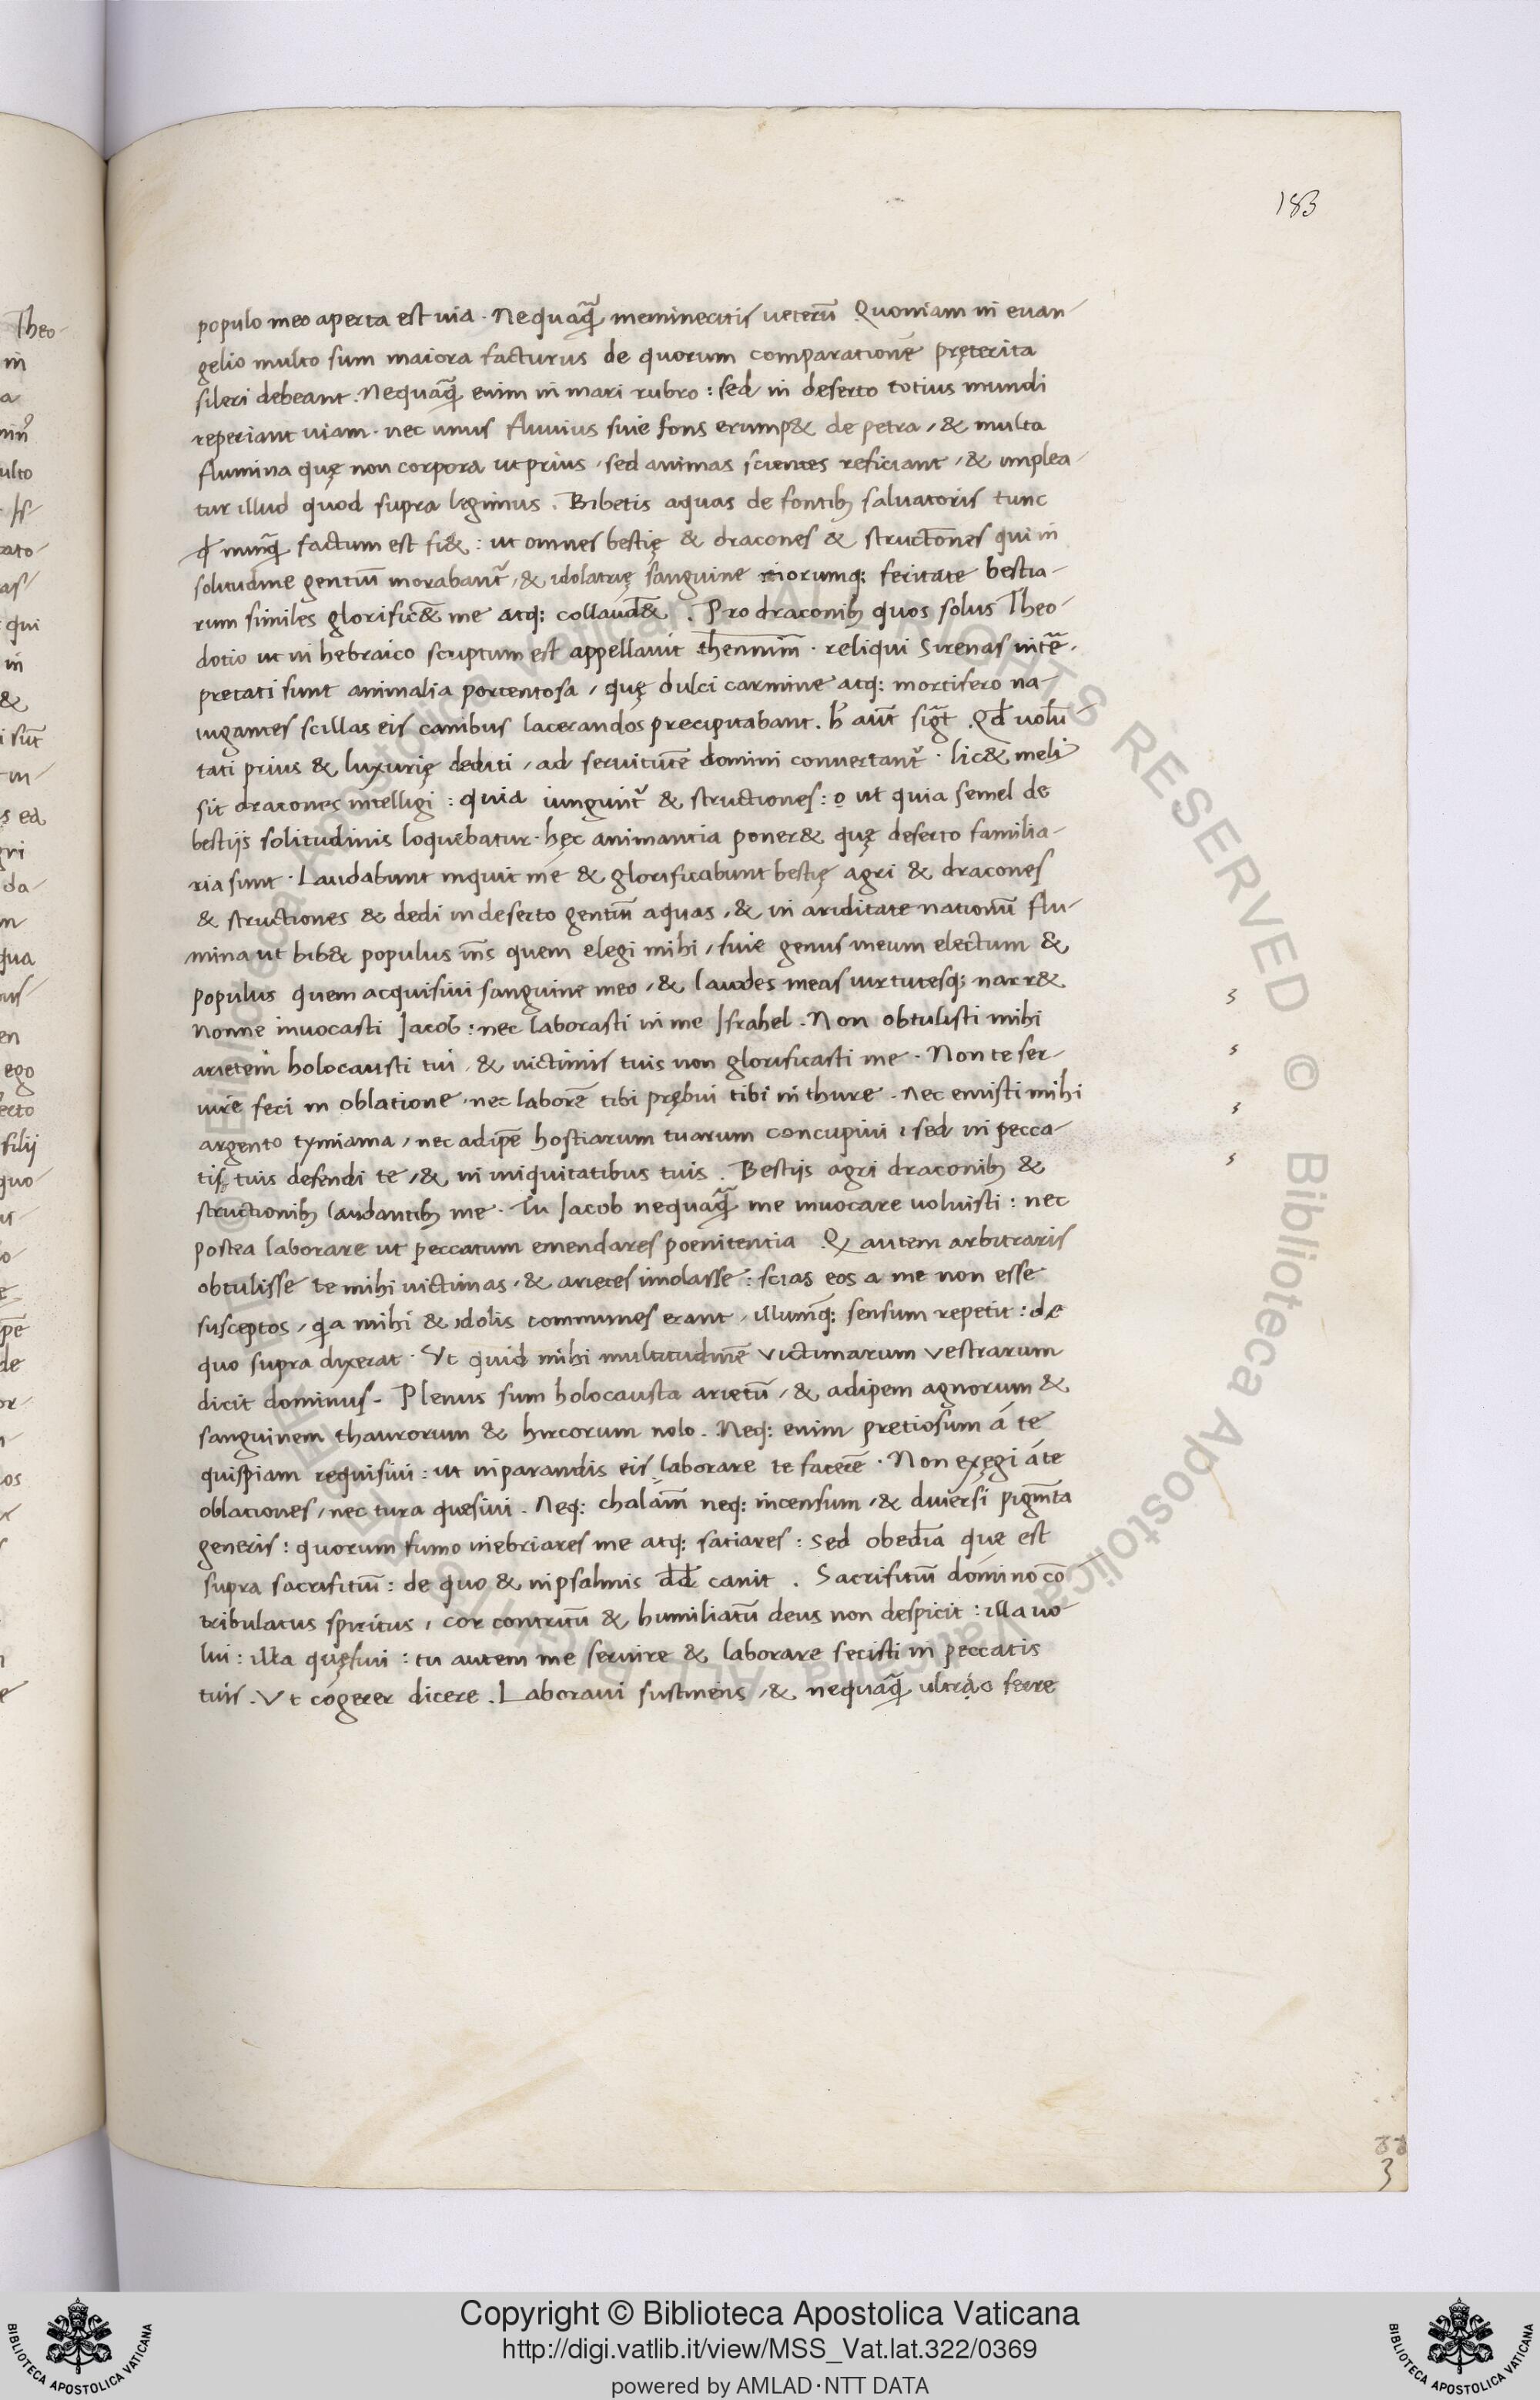 183
populo meo aperta est uia. Nequaq̃ memineritis ueterū Quoniam in euan-
gelio multo sum maiora facturus de quorum comparatione pręterita
sileri debeant. Nequaq̃ enim in mari rubro: sed in deserto totius mundi
reperiant uiam. nec unus fluuius siue fons erump& de petra, & multa
flumina quę non corpora ut prius, sed animas scientes reficiant, & implea-
tur illud quod supra legimus. Bibetis aquas de fontib; saluatoris tunc
qđ nunq̃ factum est fi&: ut omnes bestię & dracones & structōnes qui in
solitudine gentiū morabant᷑, & idolatrię sanguine riorumq; feritate bestia-
rum similes glorific& me atq; collaud&. Pro draconib; quos solus Theo-
dotio ut in hebraico scriptum est appellauit thennim̄. reliqui Sirenas int̄e-
pretati sunt animalia portentosa, quę dulci carmine atq; mortifero na-
uigantes scillas eis canibus lacerandos precipitabant. h̄ aūt sig̃t. Qđ uolu-
tati prius & luxurię dediti, ad seruitutē domini conuertant᷑. lic& meli᷒
sit dracones intelligi: quia iungunt᷑ & structiones: o ut quia semel de
bestijs solitudinis loquebatur. hęc animantia poner& quę deserto familia-
ria sunt. Laudabunt inquit me & glorificabunt bestię agri & dracones
& structiones & dedi in deserto gentiū aquas, & in ariditate nationū flu-
mina ut bib& populus m̄s quem elegi mihi, siue genus meum electum &
populus quem acquisiui sanguine meo, & laudes meas uirtutesq; narr&
Nonne inuocasti Jacob: nec laborasti in me Israhel. Non obtulisti mihi
arietem holocausti tui, & uictimis tuis non glorificasti me. Non te ser-
uire feci in oblatione, nec laborē tibi prębui tibi in thure. Nec emisti mihi
argento tymiama, nec adipē hostiarum tuarum concupiui, sed in pecca-
tis tuis defendi te, & in iniquitatibus tuis. Bestijs agri draconib; &
structionib; laudantib; me. Tu Jacob nequaq̃ me inuocare uoluisti: nec
postea laborare ut peccatum emendares poenitentia Q autem arbitraris
obtulisse te mihi uictimas, & arietes imolasse: scias eos a me non esse
susceptos, qa mihi & idolis communes erant, illumq; sensum repetit: de
quo supra dixerat. Vt quid mihi multitudinē victimarum vestrarum
dicit dominus. Plenus sum holocausta arietū, & adipem agnorum &
sanguinem thaurorum & hircorum nolo. Neq; enim pretiosum á te
quispiam requisiui: ut in parandis eis laborare te facerē. Non exęgi á te
oblationes, nec tura quesiui. Neq; chalam̄ neq; incensum, & diuersi pigm̄ta
generis: quorum fumo inebriares me atq; satiares: sed obedīa que est
supra sacrifitiū: de quo & in psalmis dd canit. Sacrifitiū domino cō
tribulatus spiritus, cor contritū & humiliatū deus non despicit: illa uo-
lui: illa quęsiui: tu autem me seruire & laborare fecisti in peccatis
tuis. Vt cogerer dicere. Laboraui sustinens, & nequaq̃ ultra o ferre
Copyright © Biblioteca Apostolica Vaticana
http://digi.vatlib.it/view/MSS_Vat.lat.322/0369
powered by AMLAD·NTT DATA
BIBLIOTECA APOSTOLICA VATICANA
BIBLIOTECA APOSTOLICA VATICANA